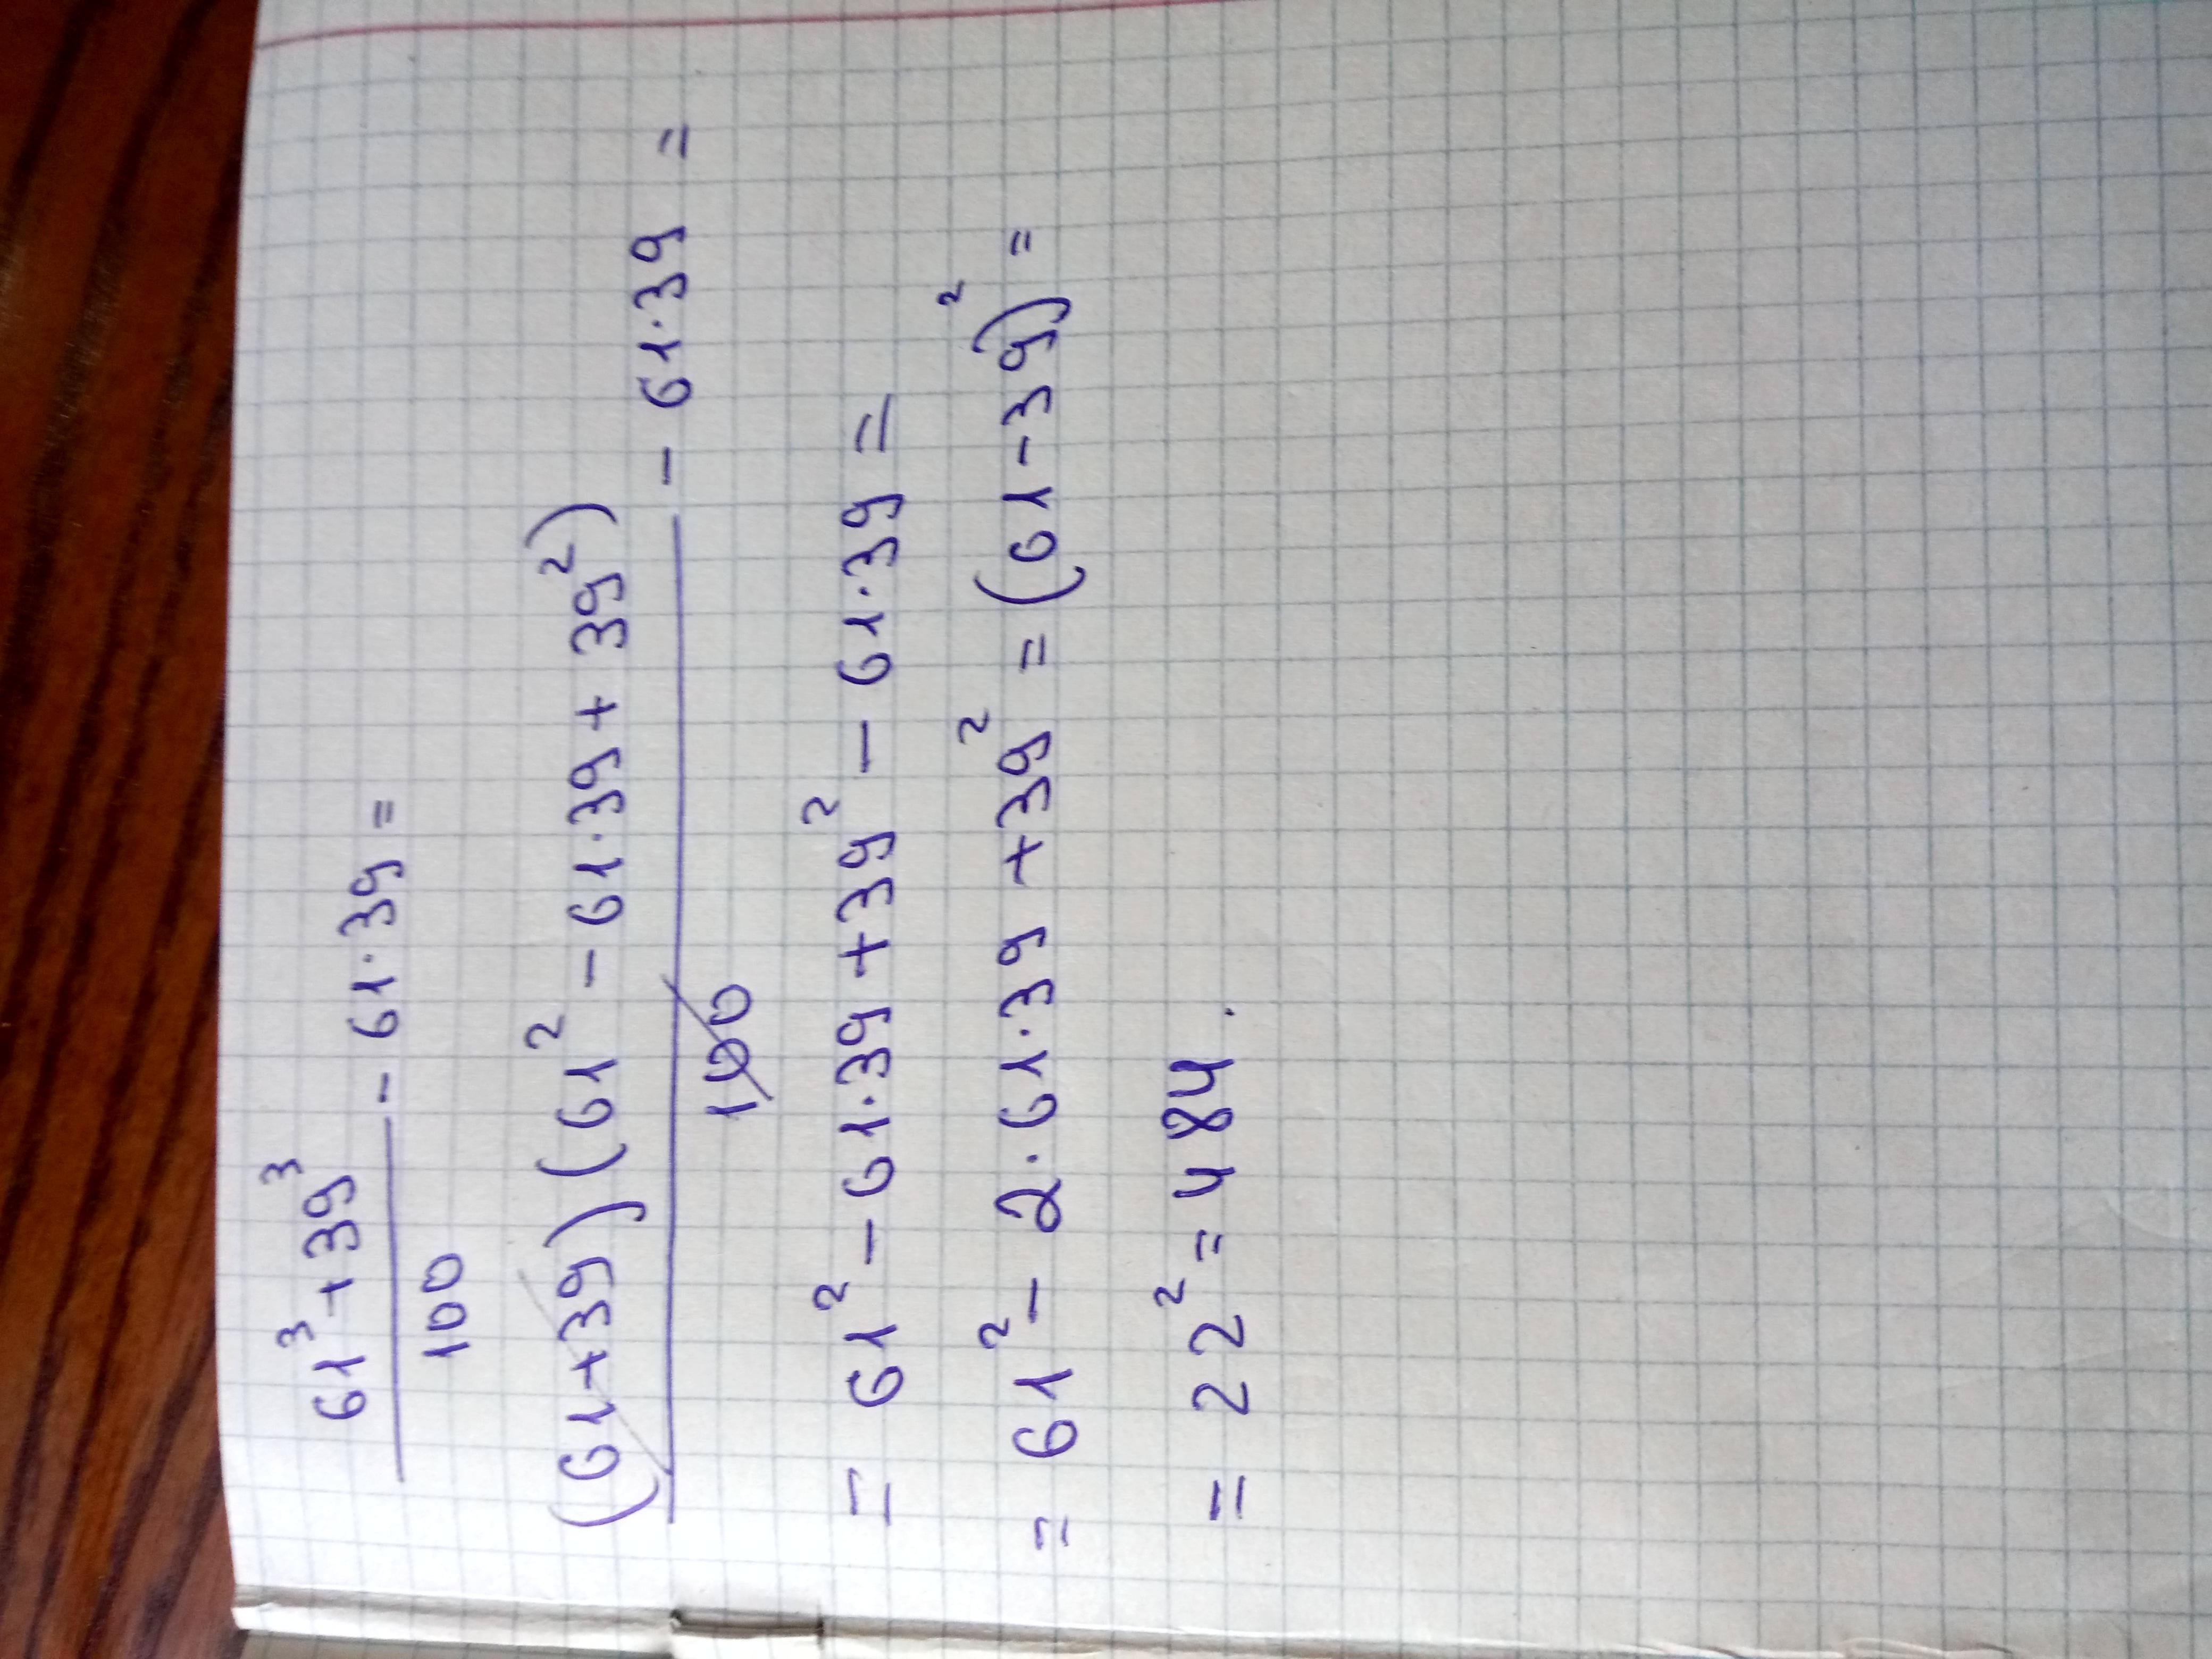 61³+39³
─── - 61·39 =
100
(61+39)(61²-61·39+39²)
─── - 61·39 =
100
= 61²-61·39+39²-61·39=
= 61²-2·61·39+39²=(61-39)²=
= 22²=484.